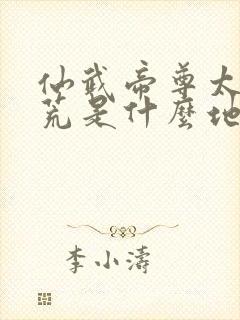 仙武帝尊太
荒是什麼地
李小濤